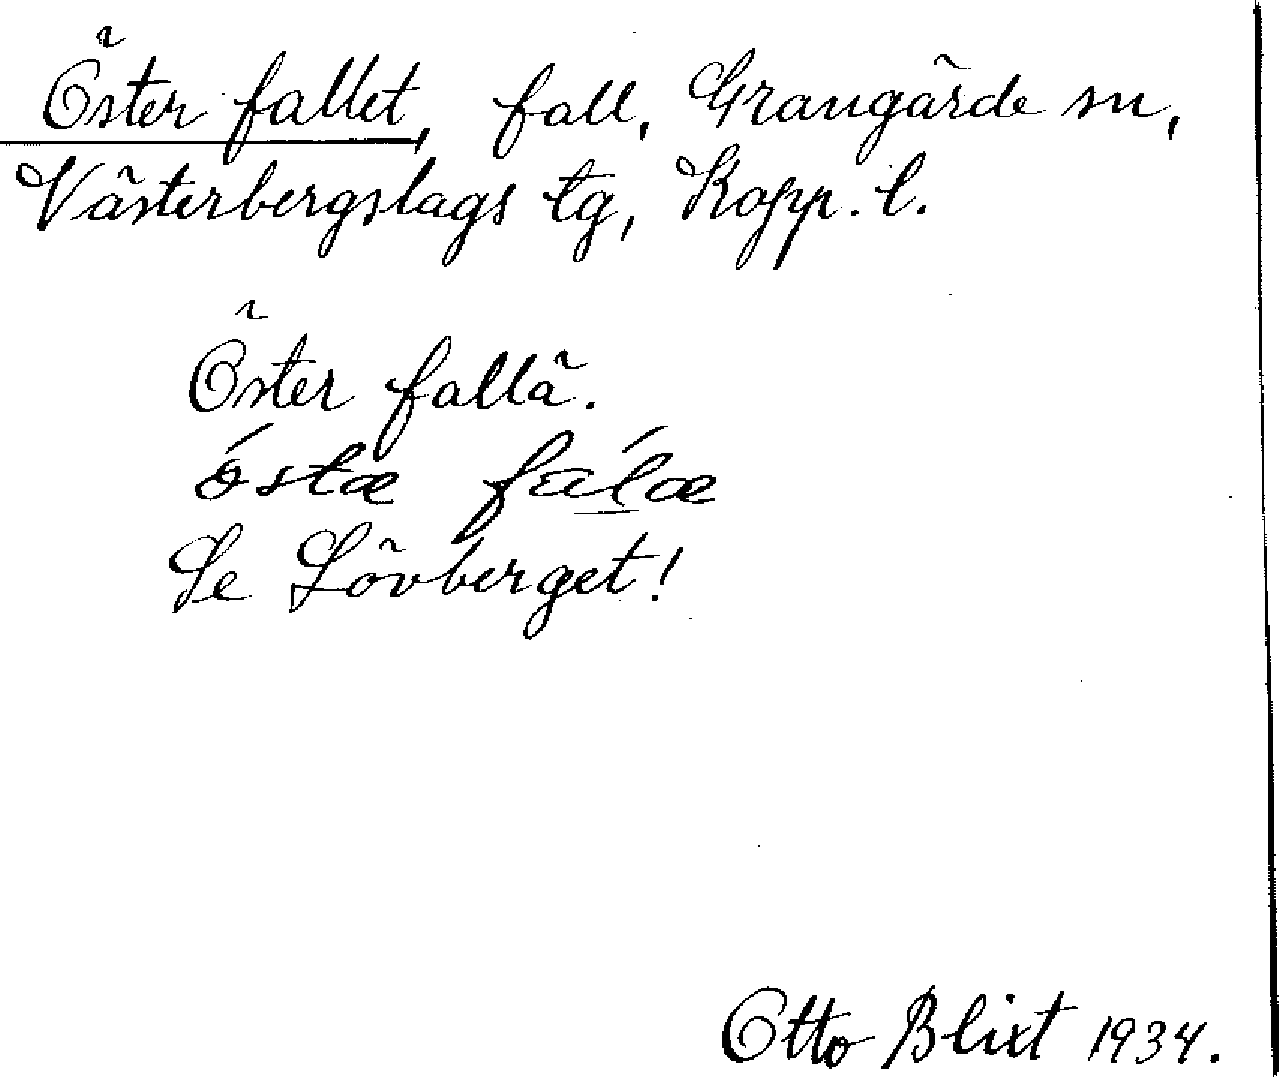 Öster fallet, fall, Grangärde sn,
Västerbergslags tg, Kopp. l.
Öster fallä.
ǿstæ fálæ
Se Lövberget!
Otto Blixt 1934.